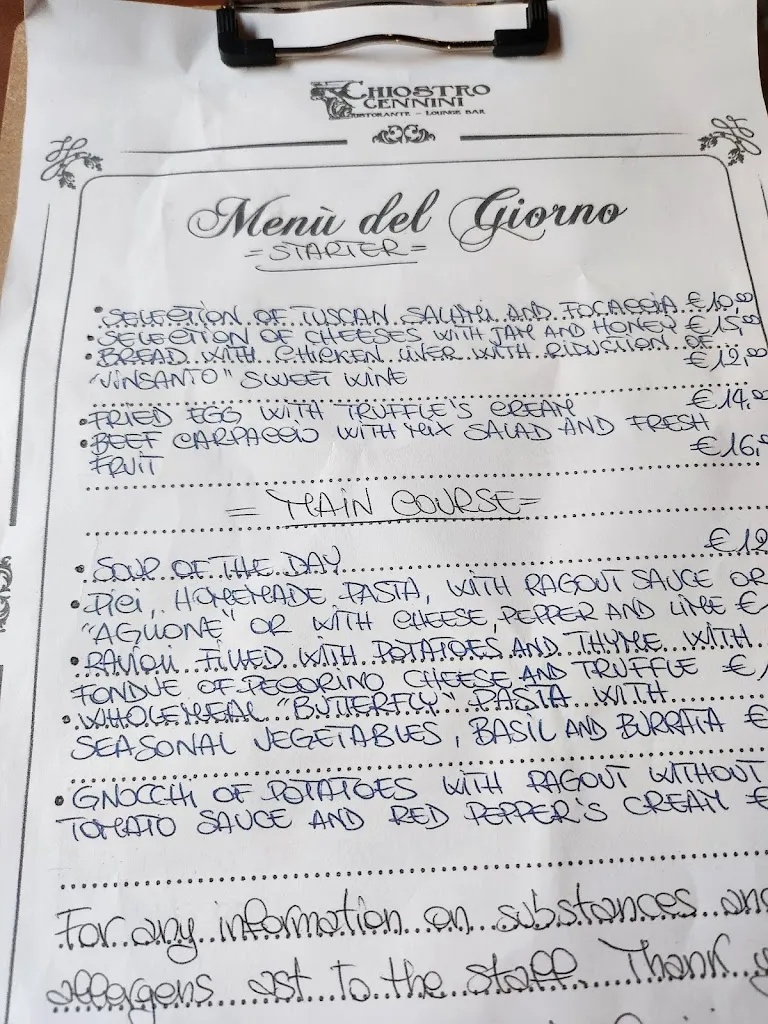 CHIOSTRO
CENNINI
RISTORANTE - LOUNGE BAR
Menù del Giorno
= STARTER =
• SELECTION OF TUSCAN SALAMI AND FOCACCIA €10,00
• SELECTION OF CHEESES WITH JAM AND HONEY €15,00
• BREAD WITH CHICKEN LIVER WITH RIDUCTION OF
"VINSANTO" SWEET WINE €12,00
• FRIED EGG WITH TRUFFLE'S CREAM €14,
• BEEF CARPACCIO WITH MIX SALAD AND FRESH
FRUIT €16,
= MAIN COURSE =
• SOUP OF THE DAY €12
• PICI, HOMEMADE PASTA, WITH RAGOUT SAUCE OR
"AGLIONE" OR WITH CHEESE, PEPPER AND LIME €
• RAVIOLI FILLED WITH POTATOES AND THYME WITH
FONDUE OF PECORINO CHEESE AND TRUFFLE €
• WHOLEMEAL "BUTTERFLY" PASTA WITH
SEASONAL VEGETABLES, BASIL AND BURRATA €
• GNOCCHI OF POTATOES WITH RAGOUT WITHOUT
TOMATO SAUCE AND RED PEPPER'S CREAM €
For any information on substances and
allergens ast to the staff. Thank